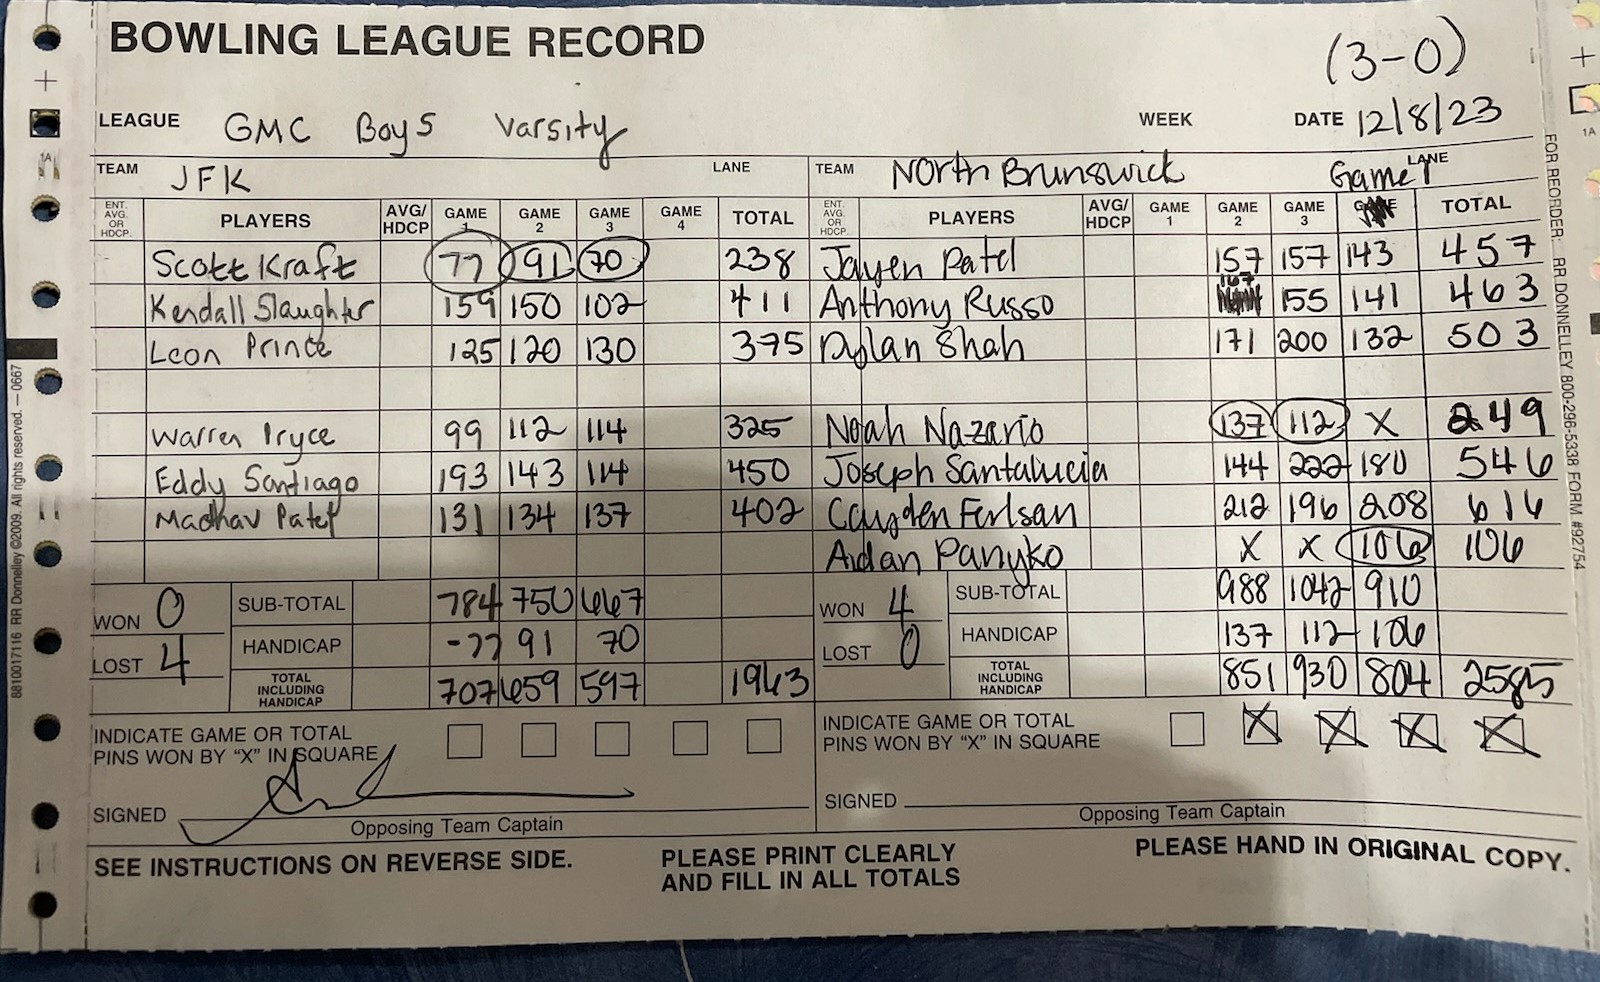 BOWLING LEAGUE RECORD
(3-0)
LEAGUE GMC Boys Varsity WEEK DATE 12/8/23
TEAM JFK LANE TEAM North Brunswick LANE
Game 1
ENT. AVG. OR HDCP. PLAYERS AVG/ HDCP GAME 1 GAME 2 GAME 3 GAME 4 TOTAL ENT. AVG. OR HDCP. PLAYERS AVG/ HDCP GAME 1 GAME 2 GAME 3 TOTAL
Scott Kraft 77 91 70 238 Jayen Patel 157 157 143 457
Kendall Slaughter 159 150 102 411 Anthony Russo 167 155 141 463
Leon Prince 125 120 130 375 Dylan Shah 171 200 132 503
Warren Pryce 99 112 114 325 Noah Nazario 137 112 X 249
Eddy Santiago 193 143 114 450 Joseph Santalucia 144 222 180 546
Madhav Patel 131 134 137 402 Cayden 212 196 208 616
Aidan Panyko X X 106 106
WON 0 SUB-TOTAL 784 750 667 WON 4 SUB-TOTAL 988 1042 910
LOST 4 HANDICAP -77 91 70 LOST 0 HANDICAP 137 112 106
TOTAL INCLUDING HANDICAP 707 659 597 1963 TOTAL INCLUDING HANDICAP 851 930 804 2585
INDICATE GAME OR TOTAL INDICATE GAME OR TOTAL
PINS WON BY "X" IN SQUARE PINS WON BY "X" IN SQUARE X X X X
SIGNED SIGNED
Opposing Team Captain Opposing Team Captain
SEE INSTRUCTIONS ON REVERSE SIDE. PLEASE PRINT CLEARLY PLEASE HAND IN ORIGINAL COPY.
AND FILL IN ALL TOTALS
8810017116 RR Donnelley ©2009. All rights reserved. — 0667
FOR REORDER: RR DONNELLEY 800-296-5338 FORM #92754
1A
1A